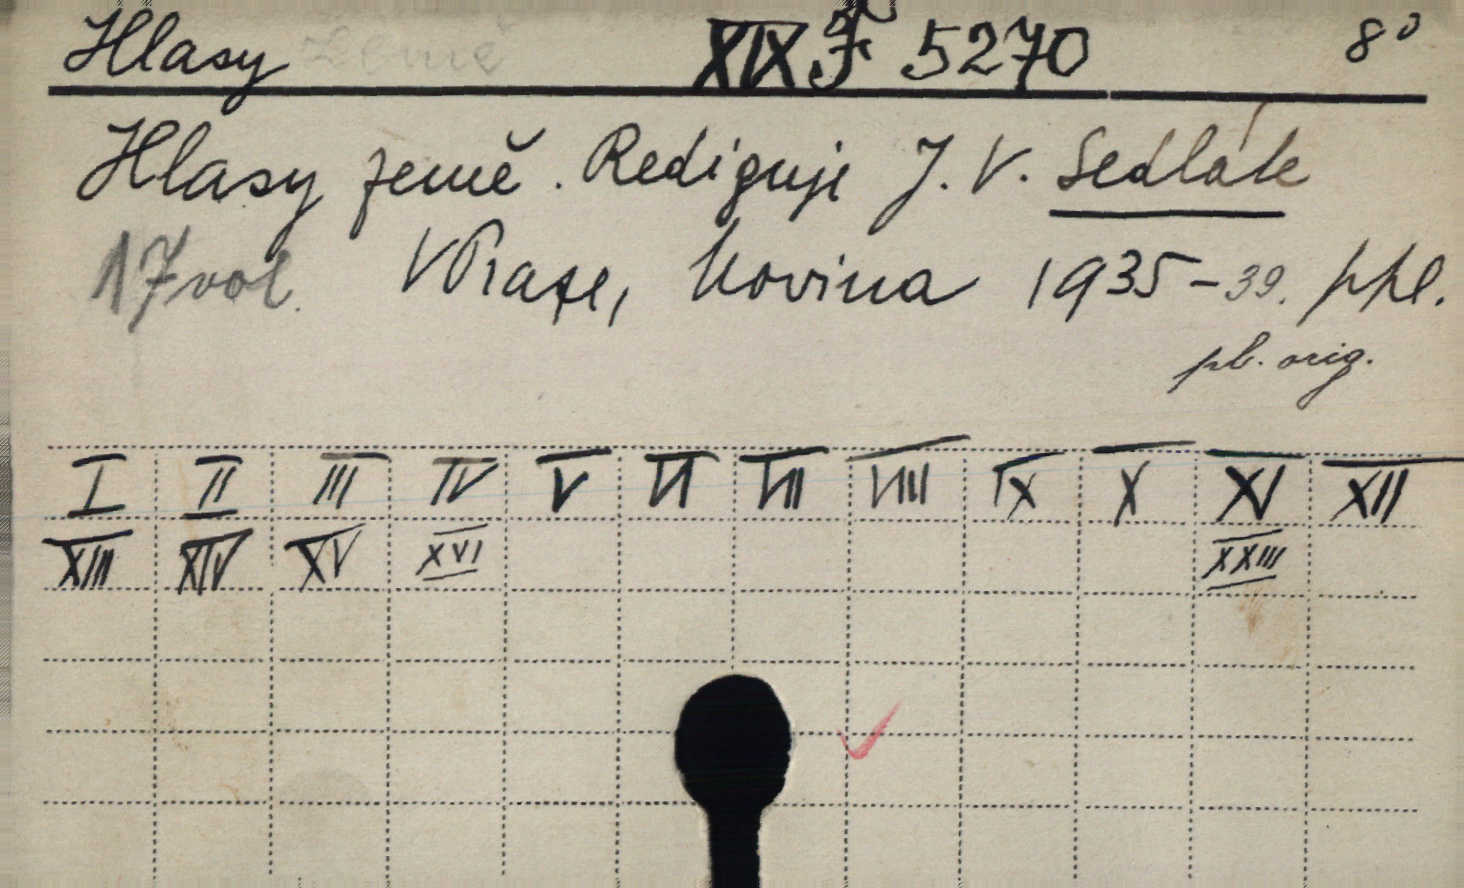 Hlasy země XIX F 5270 8°
Hlasy země. Rediguje J. V. Sedlák
17 vol. V Praze, Novina 1935-39. ppl.
pb. orig.
I II III IV V VI VII VIII IX X XI XII
XIII XIV XV XVI XXIII